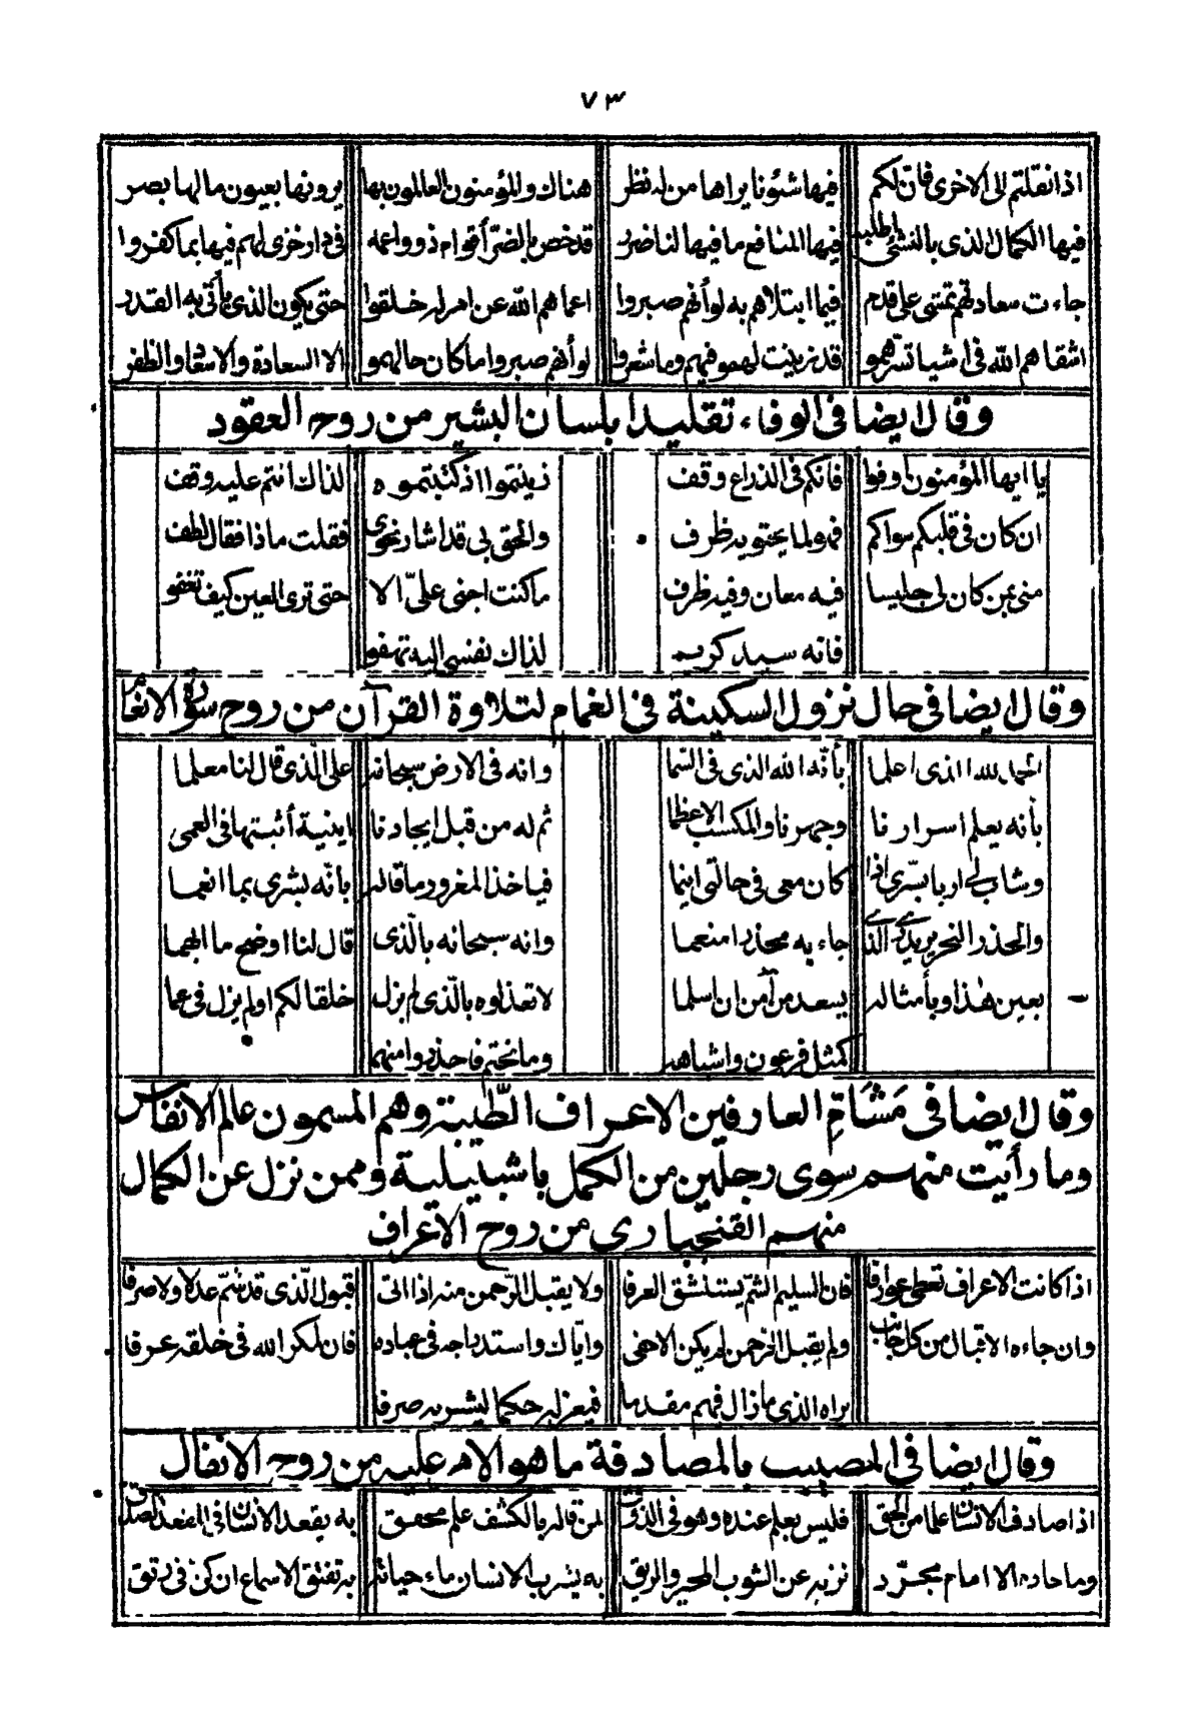 ٧٣
اذا نقلتم الى الاخرى فان لكم فيها شئونا يراها من له نظر هناك والمؤمنون العالمون بها يرونها بعيون مالها بصر
فيها الكمال الذى بالنشئ اطلبه فيها المنافع ما فيها لنا ضرر قد خص بالضر أقوام ذوو اعمه فى دار خزى لهم فيها بما كفروا
جاءت سعادتهم تمشى على قدم فيما ابتلاهم به لو أنهم صبروا اعماهم الله عن امر له خلقوا حتى يكون الذى يأتى به القدر
اشقاهم الله فى اشيا تسرهمو قد زينت لهمو فيهم وما شعروا لو أنهم صبروا ما كان حالهمو الا السعادة والاسعاد والظفر
وقال ايضا فى الوفاء تقليدا بلسان البشير من روح العقود
يا ايها المؤمنون أوفوا فانكم فى الذراع وقف زينتموا اذ كتبتموه لذاك انتم عليه وقف
ان كان فى قلبكم سواكم فهو لما يحتويه ظرف والحق بى قد اشار نحوى فقلت ماذا فقال لطف
منى بمن كان لى جليسا فيه معان وفيه ظرف ما كنت اجنى علىّ الا حتى ترى العين كيف تغفو
فانه سيد كريم لذاك نفسى اليه تهفو
وقال ايضا فى حال نزول السكينة فى الغمام لتلاوة القرآن من روح سورة الانعام
الحمد لله الذى اعلما بأنّه الله الذى فى السّما وانه فى الارض سبحانه على الّذى قال لنا معلما
بأنه يعلم اسرارنا وجهرنا والمكسب الاعظما ثم له من قبل ايجادنا اينية أثبتها فى العمى
كان معى فى حالتى اينما فيا خذ المغرور ما قاله بانّه بشرى بما انعما
جاء به محذرا منعما وانه سبحانه بالّذى قال لنا اوضح ما ابهما
بعين هذا وبأمثاله يسعد من آمن ان اسلما لا تعذلوه بالّذى لم يزل خلقا لكم او لم يزل فى عما
كمثل فرعون واشباهه وما نختم فاحذروا منهما
وقال ايضا فى مَشَامِّ العارفين الاعراف الطّيبة وهم المسمون عالم الانفاس
وما رأيت منهم سوى رجلين من الكمل باشبيلية وممن نزل عن الكمال
منهم القنجبارى من روح الاعراف
اذا كانت الاعراف تعطى عوارفا فان السليم الشم يستنشق العرفا ولا يقبل الرّحمن منه اذا اتى قبول الّذى قد شمّ عدلا ولا صرفا
وان جاءه الاقبال من كل جانب ولم يقبل الرحمن لم يكن الاحفى وايّاك واستدراجه فى عباده فان لمكر الله فى خلقه عرفا
يراه الذى ما زال فيهم مقدما فيعزله حكما ليشربه صرفا
وقال ايضا فى المصيب بالمصادفة ما هو الامر عليه من روح الانفال
اذا صادف الانسان علما من الحق فليس بعلم عنده وهو فى الذوق لمن قاله بالكشف علم محقق به يقعد الانسان فى المقعد الصدق
وما حازه الا امام مجرّد نزيه عن الشوب المحير والريق به يشرب الانسان ماء حياته به تفتق الاسماع ان كنّ فى رتق